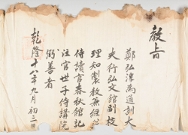 敎旨
鄭弘淳爲通訓大
夫行弘文館副校
理知製敎兼經筵
侍讀官春秋館記
注官世子侍講院
弼善者
乾隆十八年九月初三日